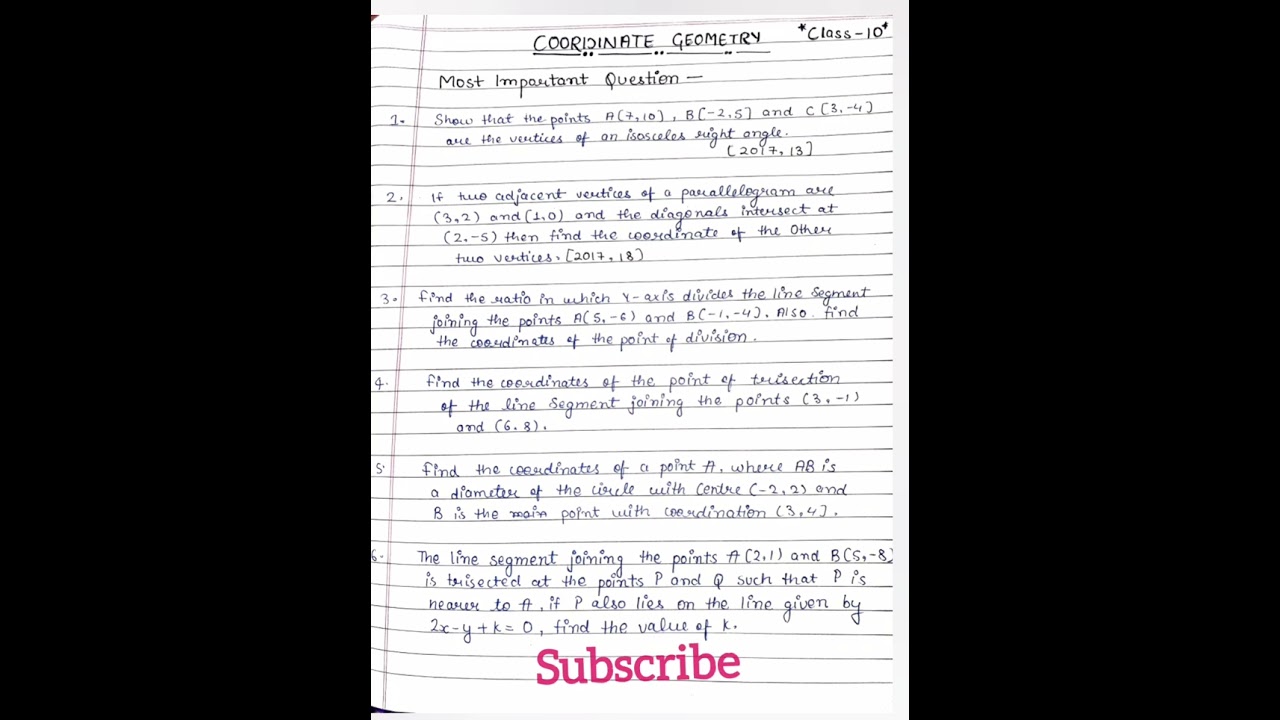 COORDINATE GEOMETRY *Class-10*
Most Important Question —
1. Show that the points A(7,10), B[-2,5] and C[3,-4]
are the vertices of an isosceles right angle.
[2017, 13]
2. If two adjacent vertices of a parallelogram are
(3,2) and (1,0) and the diagonals intersect at
(2,-5) then find the coordinate of the Other
two vertices. [2017, 18]
3. find the ratio in which Y-axis divides the line segment
joining the points A(5,-6) and B(-1,-4). Also find
the coordinates of the point of division.
4. find the coordinates of the point of trisection
of the line segment joining the points (3,-1)
and (6.8).
5. find the coordinates of a point A, where AB is
a diameter of the circle with centre (-2,2) and
B is the main point with coordination (3,4].
6. The line segment joining the points A(2,1) and B(5,-8)
is trisected at the points P and Q such that P is
nearer to A, if P also lies on the line given by
2x-y+k=0, find the value of k.
Subscribe